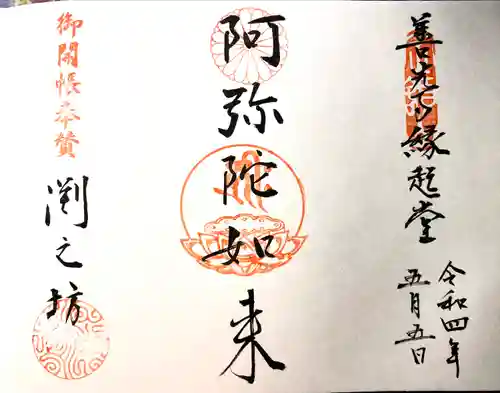 善光寺縁起堂
令和四年
五月五日
阿弥陀如来
御開帳奉賛
淵之坊